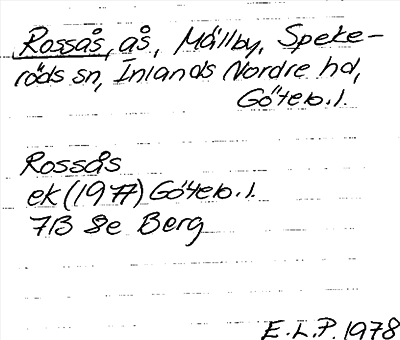 Rossås, ås, Mållby, Speke-
röds sn, Inlands Nordre hd,
Göteb.l.
Rossås
ek (1977) Göteb.l.
7B 8e Berg
E.L.P. 1978